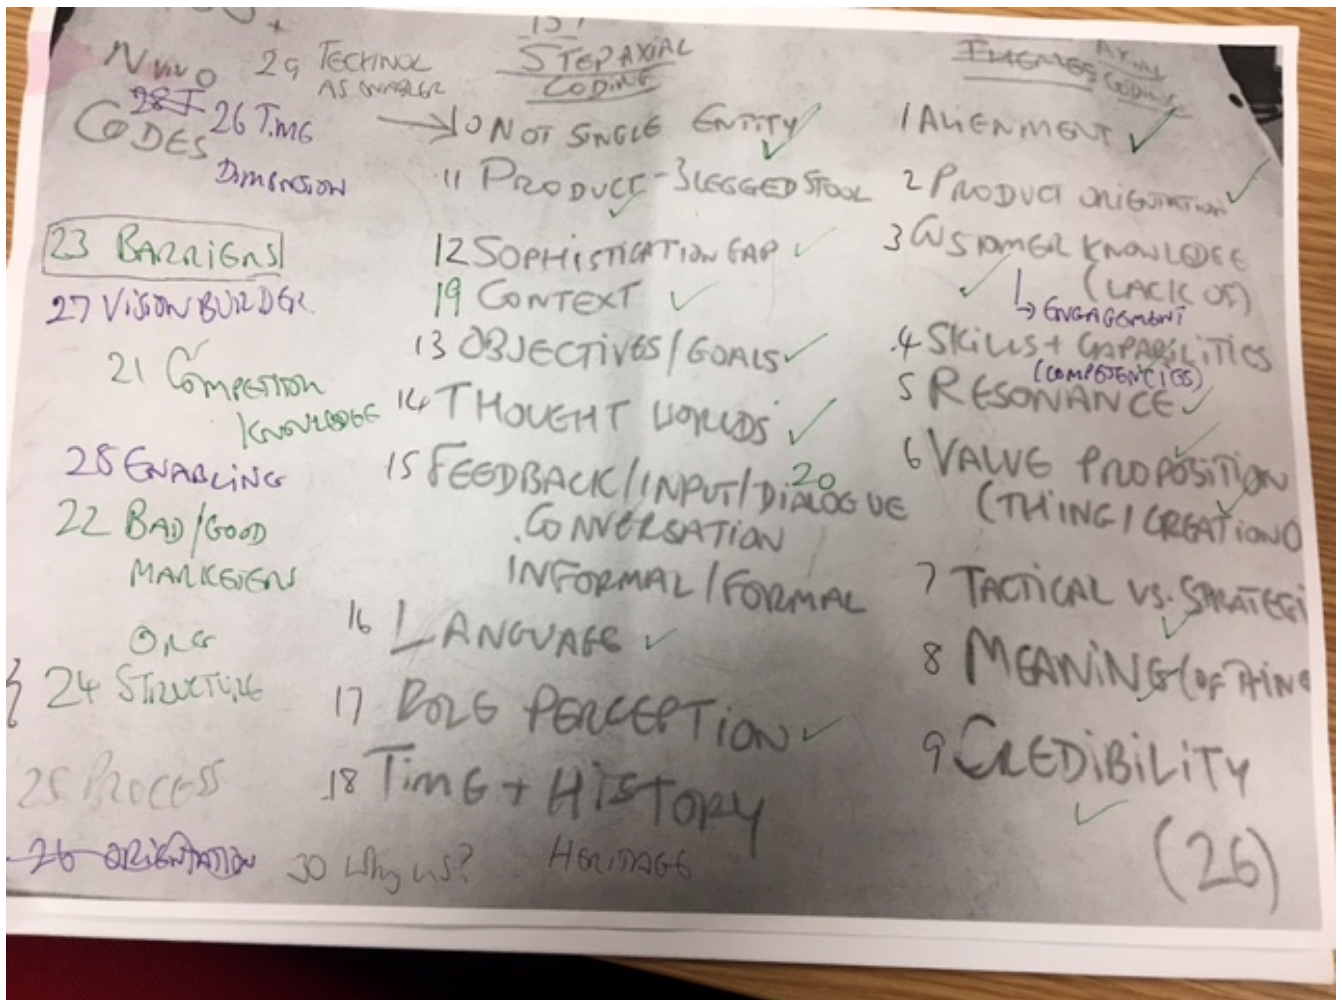 NVIVO
CODES
29 TECHNOL
AS ENABLER
26 TIME
DIMENSION
23 BARRIERS
27 VISION BUILDER
21 COMPETITOR
KNOWLEDGE
28 ENABLING
22 BAD/GOOD
MARKETERS
ORG
24 STRUCTURE
25 PROCESS
26 ORIENTATION
30 Why us?
1ST
STEP AXIAL
CODING
→ 10 NOT SINGLE ENTITY
11 PRODUCT - 3 LEGGED STOOL
12 SOPHISTICATION GAP
19 CONTEXT
13 OBJECTIVES/GOALS
14 THOUGHT WORLDS
15 FEEDBACK/INPUT/DIALOGUE
20
CONVERSATION
INFORMAL/FORMAL
16 LANGUAGE
17 ROLE PERCEPTION
18 TIME + HISTORY
HERITAGE
THEMES AXIAL
CODING
1 ALIENMENT
2 PRODUCT ORIENTATION
3 CUSTOMER KNOWLEDGE
(LACK OF)
→ ENGAGEMENT
4 SKILLS + CAPABILITIES
(COMPETENCIES)
5 RESONANCE
6 VALUE PROPOSITION
(THING/CREATION)
7 TACTICAL VS. STRATEGI
8 MEANING (OF THING
9 CREDIBILITY
(26)